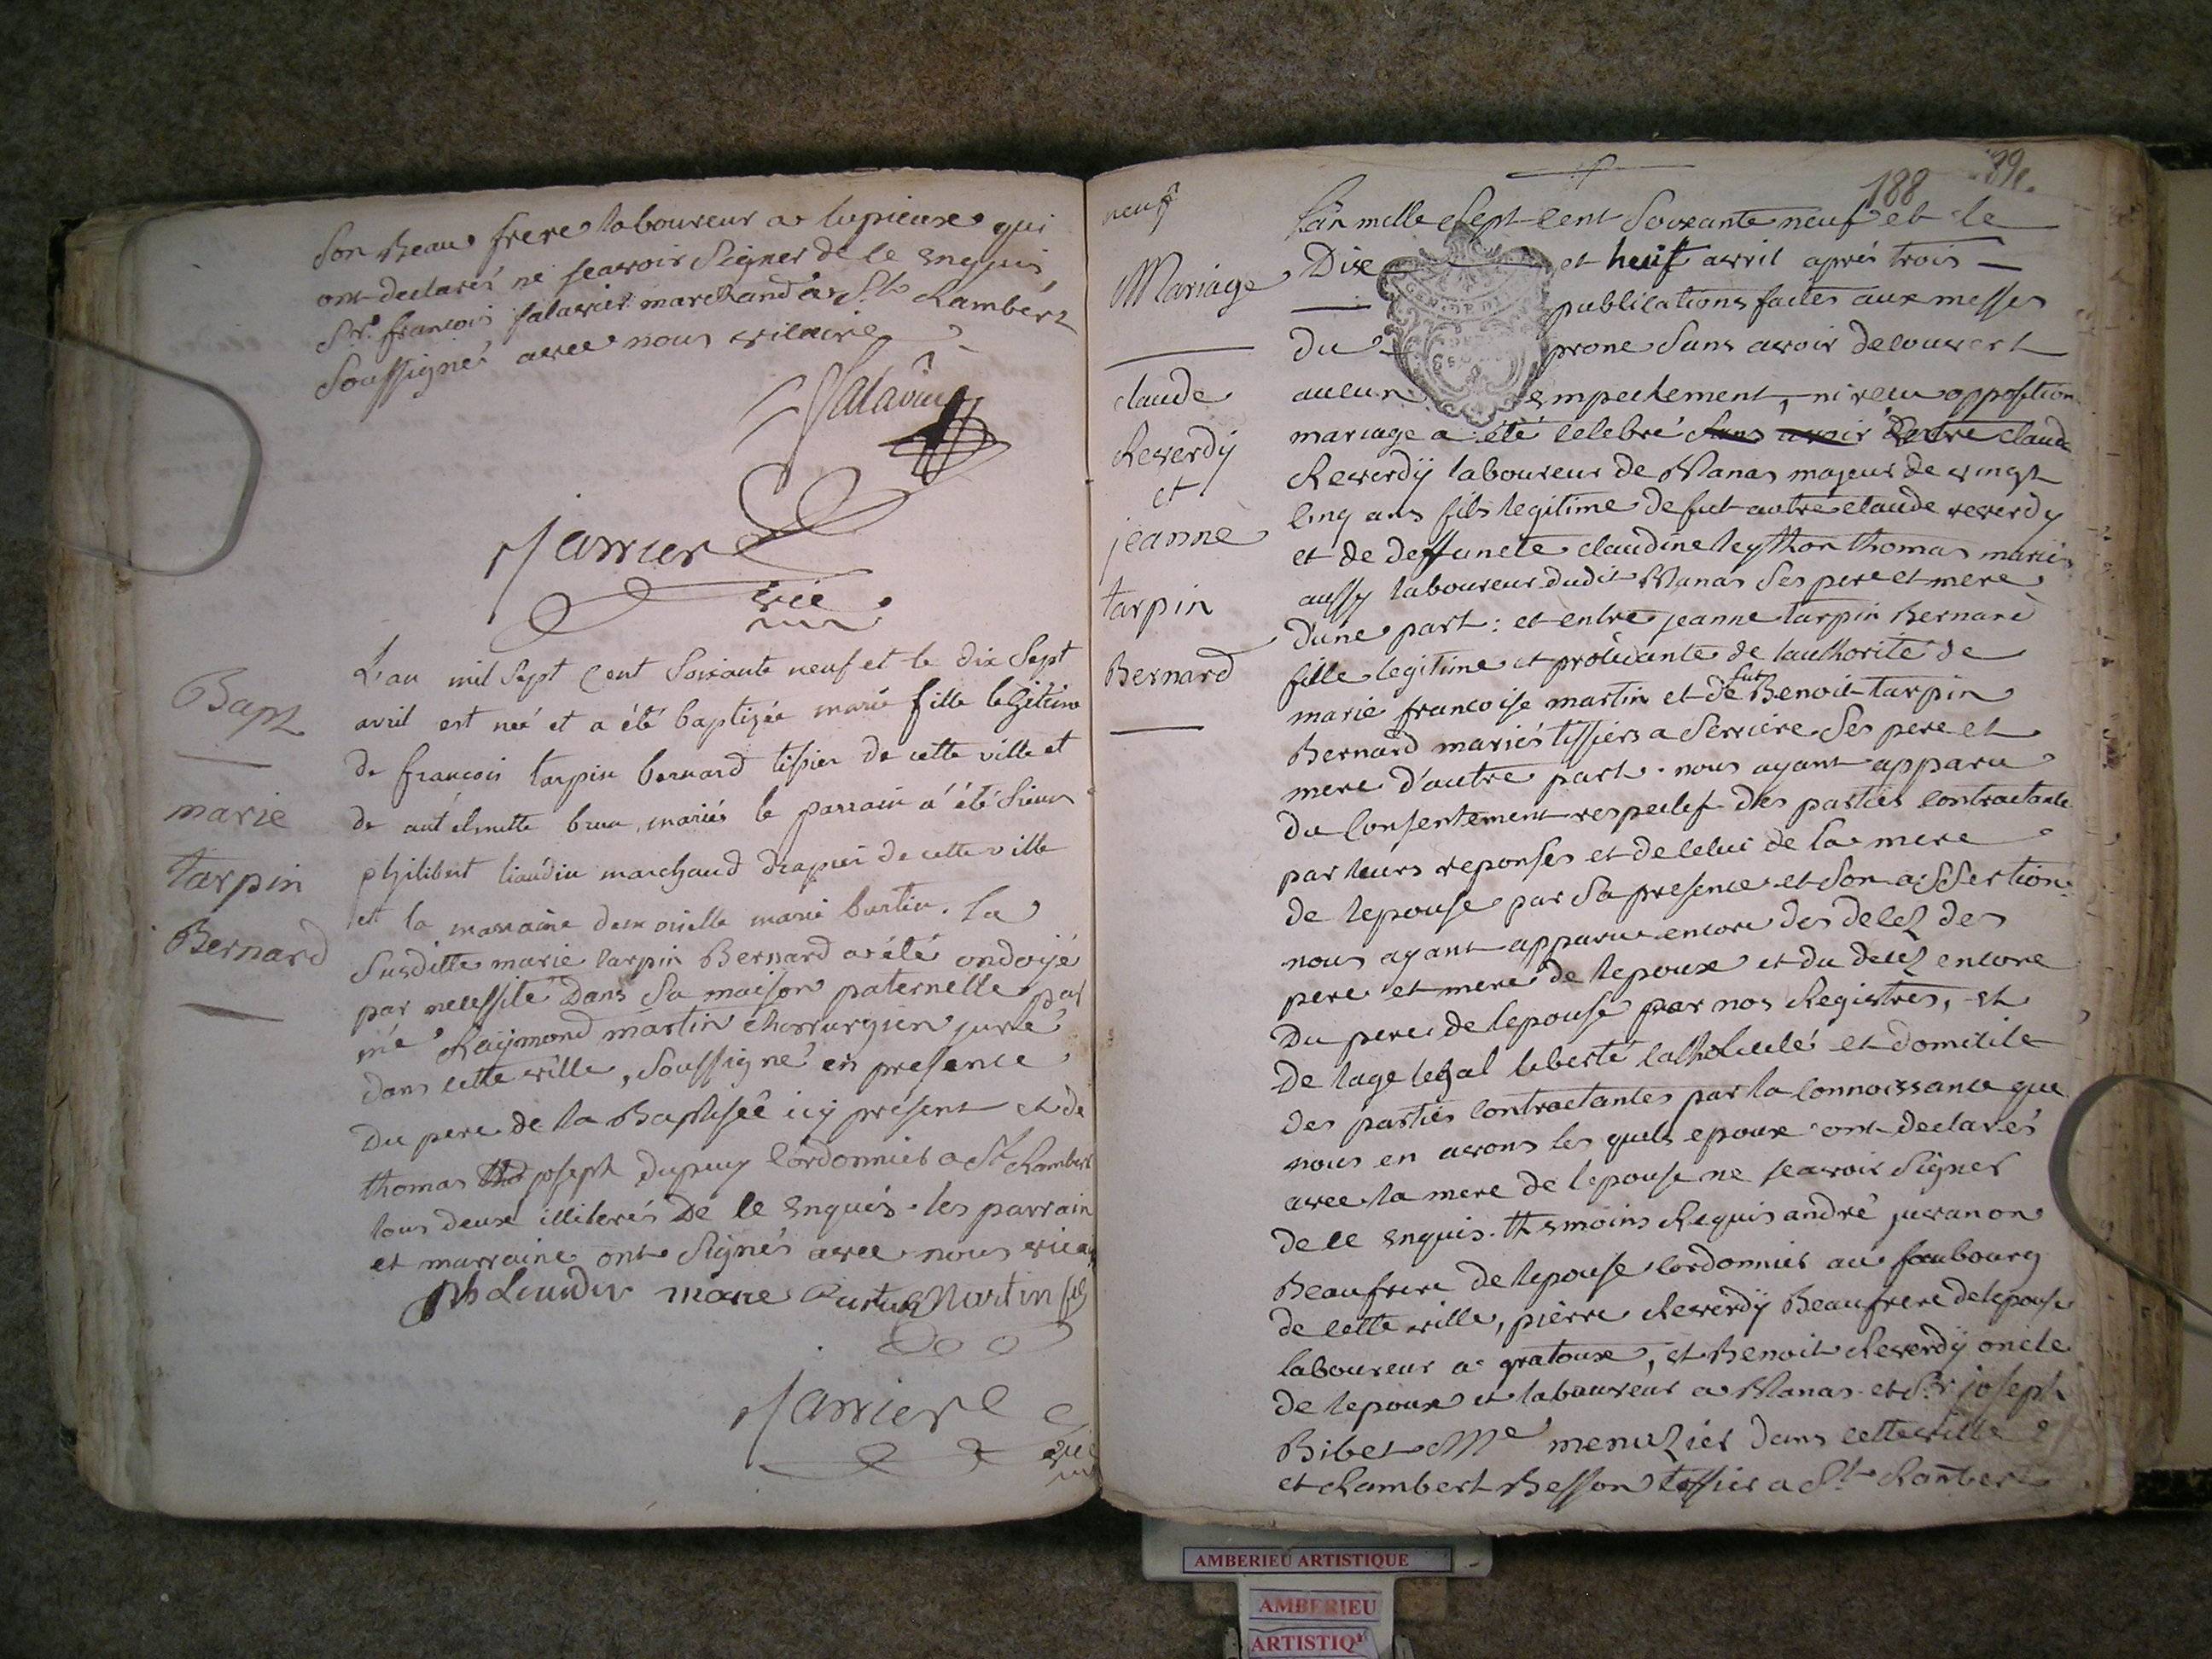 son Beau frere laboureur a lupieux qui
ont declarés ne scavoir signer de ce enquis
Sr. francois salavier marchand a St Rambert
soussigné avec nous vicaire
Salavin
Jarrier
vic
Bapt
marie
tarpin
Bernard
L'an mil sept cent soixante neuf et le dix sept
avril est neé et a été baptizée marie fille legitime
de françois tarpin bernard tissier de cette ville et
de antelmette brun, mariés le parrain a été sieur
philibert liaudin marchand drapier de cette ville
et la marraine demoiselle marie burtin. la
susditte marie tarpin Bernard a été ondoijé
par necessité Dans sa maison paternelle par
me Raijmond martin chirrurgien juré
dans cette ville, soussigné en presence
Du pere de la Baptisée icy present et de
thomas joseph dupuy Cordonnier a St Rambert
tous deux illiterés De ce enquis. les parrain
et marraine ont signés avec nous vicaire
Ph Liaudin marie Burtin Martin fils
Jarrier
vic
188
neuf
Mariage
claude
Reverdij
et
jeanne
tarpin
Bernard
L'an mille sept cent soixante neuf et le
Dix et neuf avril aprés trois
publications faites aux messes
du prone sans avoir decouvert
aucun empechement, ni recu opposition
mariage a été celebré sans avoir Entre claude
Reverdij laboureur de Vanas majeur de vingt
cinq ans fils legitime de fut autre claude reverdy
et de deffuncte claudine leython thomas mariés
aussy laboureur dudit Vanas ses pere et mere
d'une part: et entre jeanne tarpin Bernard
fille legitime et procedante de lauthorité de
marie francoise martin et de fut Benoit tarpin
Bernard mariés tissiers a Serriere ses pere et
mere d'autre part. nous ayant apparu
du consentement respectif des parties contractante
par leurs reponses et de celui de la mere
de lepouse par sa presence et son assertion
nous ayant apparu encore des decez des
pere et mere de lepoux et du decez encore
Du pere de lepouse par nos Registres, et
De lage legal liberté catholicité et domicile
Des parties contractantes par la connoissance que
nous en avons les quels epoux ont declarés
avec la mere de lepouse ne scavoir signer
de ce enquis. themoins Requis andré juvanon
Beaufrere de lepouse cordonnier au faubourg
de cette ville, pierre Reverdij Beaufrere de lepouse
laboureur a gratoux, et Benoit Reverdij oncle
de lepoux et laboureur a Vanas et Sr joseph
Bibet Me menuzier dans cette ville
et Rambert Besson tissier a St Rambert
AMBERIEU ARTISTIQUE
AMBERIEU
ARTISTIQ